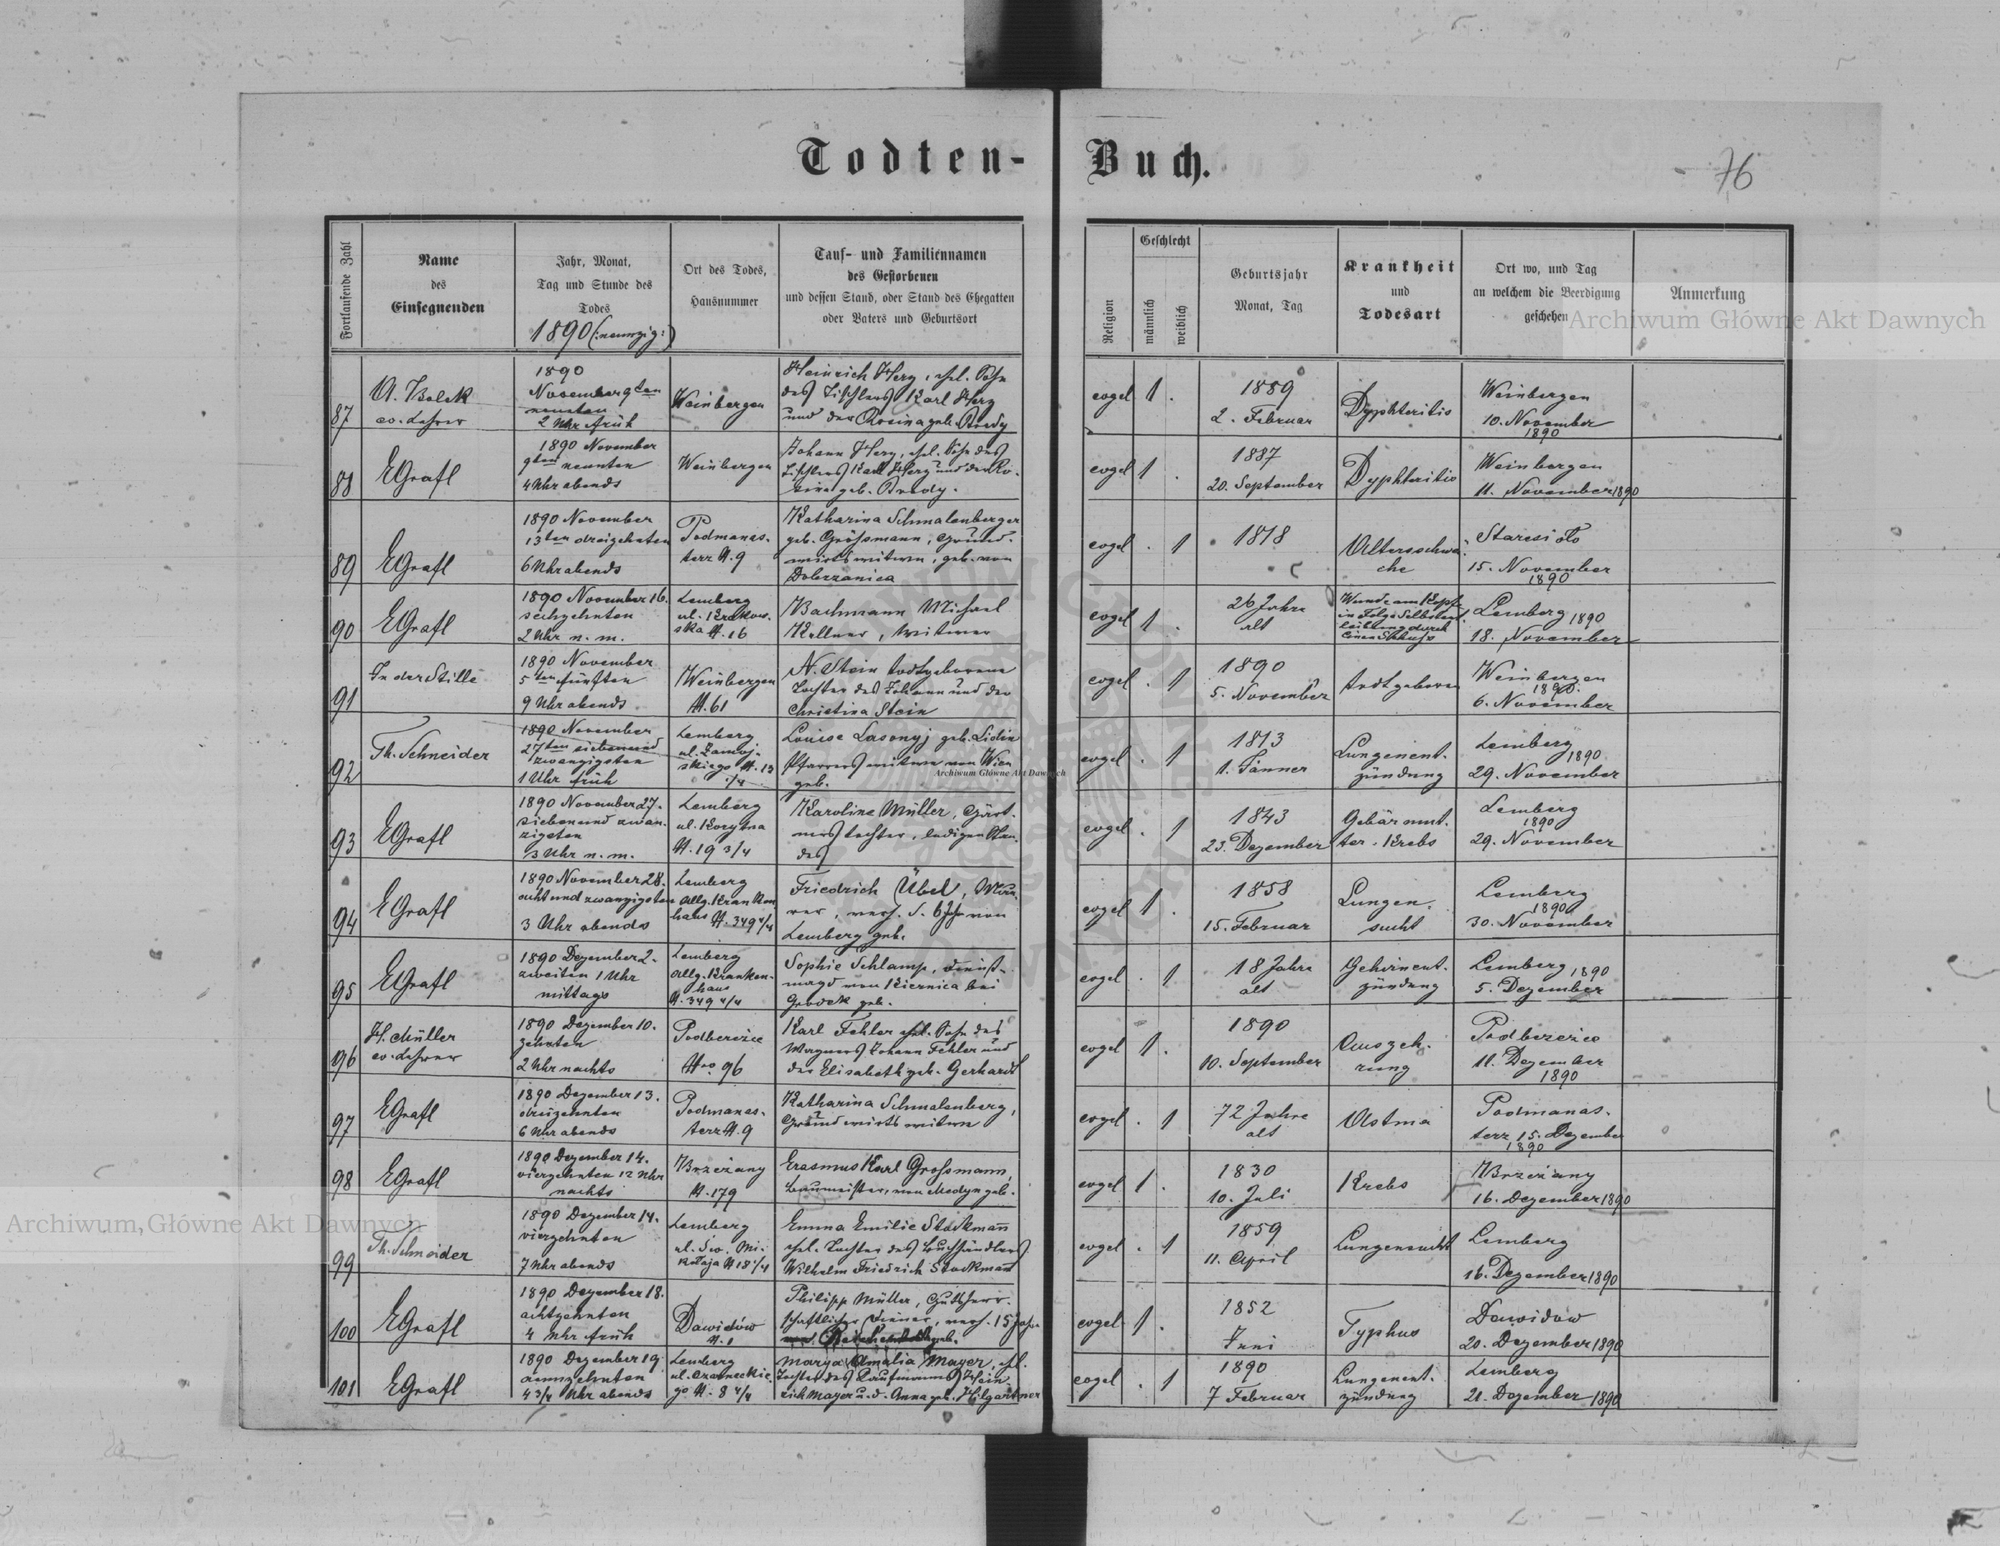 Todten-Buch.
76
Fortlaufende Zahl
Name
des
Einsegnenden
Jahr, Monat,
Tag und Stunde des
Todes
1890 (:neunzig:)
Ort des Todes,
Hausnummer
Tauf- und Familiennamen
des Gestorbenen
und dessen Stand, oder Stand des Ehegatten
oder Vaters und Geburtsort
Religion
Geschlecht
männlich
weiblich
Geburtsjahr
Monat, Tag
Krankheit
und
Todesart
Ort wo, und Tag
an welchem die Beerdigung
geschehen
Anmerkung
87
ev. Lehrer
1890
November 9ten
neunten
2 Uhr früh
Weinbergen
Heinrich Herz, ehel. Sohn
des Tischlers Karl Herz
und der Rosina geb. Bredy
evgel
1 .
1889
2. Februar
Dyphteritis
Weinbergen
10. November
1890
88
EGrafl
1890 November
9ten neunten
4 Uhr abends
Weinbergen
Johann Herz, ehel. Sohn des
Tischlers Karl Herz und der Ro-
zina geb. Bredy.
evgel
1 .
1887
20. September
Dyphteritis
Weinbergen
11. November 1890
89
EGrafl
1890 November
13ten dreizehnten
6 Uhr abends
Podmanas-
terz N. 9
Katharina Schmalenberger
geb. Grossmann, Grund-
wirtswitwe, geb. von
Dobrzanica
evgel
. 1
1818
Altersschwä-
che
Staresioło
15. November
1890
90
EGrafl
1890 November 16.
sechzehnten
2 Uhr n. m.
Lemberg
ul. Krakow-
ska N. 16
Bachmann Michael
Kellner, Witwer
evgel
1 .
26 Jahre
alt
Wunde am Kopfe
in Folge Selbstent-
leibung durch
einen Schuss
Lemberg 1890
18. November
91
In der Stille
1890 November
5ten fünften
9 Uhr abends
Weinbergen
N. 61
N. Stein todtgeborene
Tochter des Johann und der
Christina Stein
evgel
. 1
1890
5. November
todtgeboren
Weinbergen
1890.
6. November
92
Th. Schneider
1890 November
27ten siebenund
zwanzigsten
1 Uhr früh
Lemberg
ul. Zamoj-
skiego N. 13
/4
Louise Lasonyj geb.
Pfarrerswitwe von Wien
geb.
evgel
. 1
1813
1. Jänner
Lungenent-
zündung
Lemberg
1890
29. November
93
EGrafl
1890 November 27.
siebenund zwan-
zigsten
3 Uhr n. m.
Lemberg
N. 19 3/4
Karoline Müller, Gärt-
nerstochter, ledigen Stan-
des
evgel
. 1
1843
23. Dezember
Gebärmut-
ter-Krebs
Lemberg
1890
29. November
94
EGrafl
1890 November 28.
acht und zwanzigsten
3 Uhr abends
Lemberg
Allg. Kranken
haus N. 349 4/4
Friedrich Übel, Mau-
rer,
Lemberg geb.
evgel
1 .
1858
15. Februar
Lungen-
sucht
Lemberg
1890
30. November
95
EGrafl
1890 Dezember 2.
zweiten 1 Uhr
mittags
Lemberg
Allg. Kranken-
haus
N. 349 4/4
Sophie Schlamp, Dienst-
magd von Kiernica bei
Grodek geb.
evgel
. 1
18 Jahre
alt
Gehirnent-
zündung
Lemberg 1890
5. Dezember
96
H. Müller
ev. Lehrer
1890 Dezember 10.
zehnten
2 Uhr nachts
Podberezce
Nro 96
Karl Fehler ehel. Sohn des
Wagners Johann Fehler und
der Elisabeth geb. Gerhardt
evgel
1 .
1890
10. September
Auszeh-
rung
Podberezce
11. Dezember
1890
97
EGrafl
1890 Dezember 13.
dreizehnten
6 Uhr abends
Podmanas-
terz N. 9
Katharina Schmalenberg,
Grundwirtswitwe
evgel
. 1
72 Jahre
alt
Astma
Podmanas-
terz 15. Dezember
1890
98
EGrafl
1890 Dezember 14.
vierzehnten 12 Uhr
nachts
Brzeżany
N. 179
Erasmus Karl Grossmann,
Baumeister, von Medyn geb.
evgel
1 .
1830
10. Juli
Krebs
Brzeżany
16. Dezember 1890
99
Th. Schneider
1890 Dezember 14.
vierzehnten
7 Uhr abends
Lemberg
ul. Św. Mi-
kołaja N 18 1/4
Emma Emilie Stockmann
ehel. Tochter des Buchhändlers
Wilhelm Friedrich Stockmann
evgel
. 1
1859
11. April
Lungensucht
Lemberg
16. Dezember 1890
100
EGrafl
1890 Dezember 18.
achtzehnten
4 Uhr früh
Dawidów
N. 1
Philipp Müller, Gutsherr-
schaftlicher Diener, verh. 15 Jahre
geb.
evgel
1 .
1852
Juni
Typhus
Dawidow
20. Dezember 1890
101
EGrafl
1890 Dezember 19.
neunzehnten
4 3/4 Uhr abends
Lemberg
ul. Czarneckie-
go N. 8 4/4
Marya Amalia Mayer, ehl.
Tochter des Kaufmanns Hein-
rich Mayer u. d. Anna geb. Hilgartner
evgel
. 1
1890
7 Februar
Lungenent-
zündung
Lemberg
21. Dezember 1890
Archiwum Główne Akt Dawnych
Archiwum Główne Akt Dawnych
Archiwum Główne Akt Dawnych